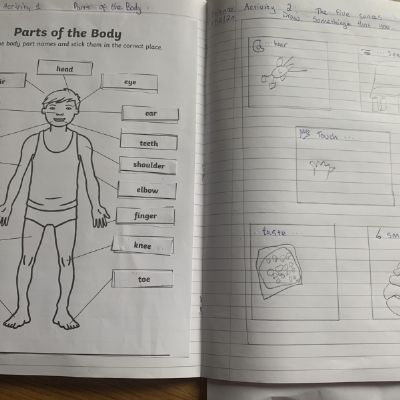 Activity 1 Parts of the Body
Parts of the Body
he body part names and stick them in the correct place.
head
eye
ear
teeth
shoulder
elbow
finger
knee
toe
Activity 2 The Five senses
Draw Something that you
hear
Touch ...
taste